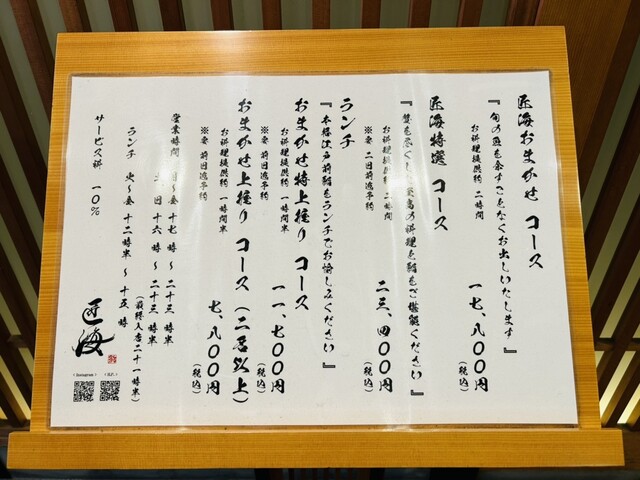 匠海おまかせ コース
『旬の魚を余すことなくお出しいたします』
お料理提供約 二時間
一七、八〇〇円
(税込)
匠海特選 コース
『贅を尽くした最高の料理と鮨をご堪能ください』
お料理提供約 二時間
※要 二日前迄予約
二三、四〇〇円
(税込)
ランチ
『本格江戸前鮨をランチでお愉しみください』
おまかせ特上握り コース
お料理提供約 一時間半
※要 前日迄予約
一一、七〇〇円
(税込)
おまかせ上握り コース(二名以上)
お料理提供約 一時間半
※要 前日迄予約
七、八〇〇円
(税込)
営業時間 月〜金 十七 時 〜 二十三 時半
日 十六 時 〜 二十三 時半
(最終入店二十一時半)
ランチ 火〜金 十二時半 〜 十五 時
サービス料 一〇%
匠海
< Instagram >
< H.P. >